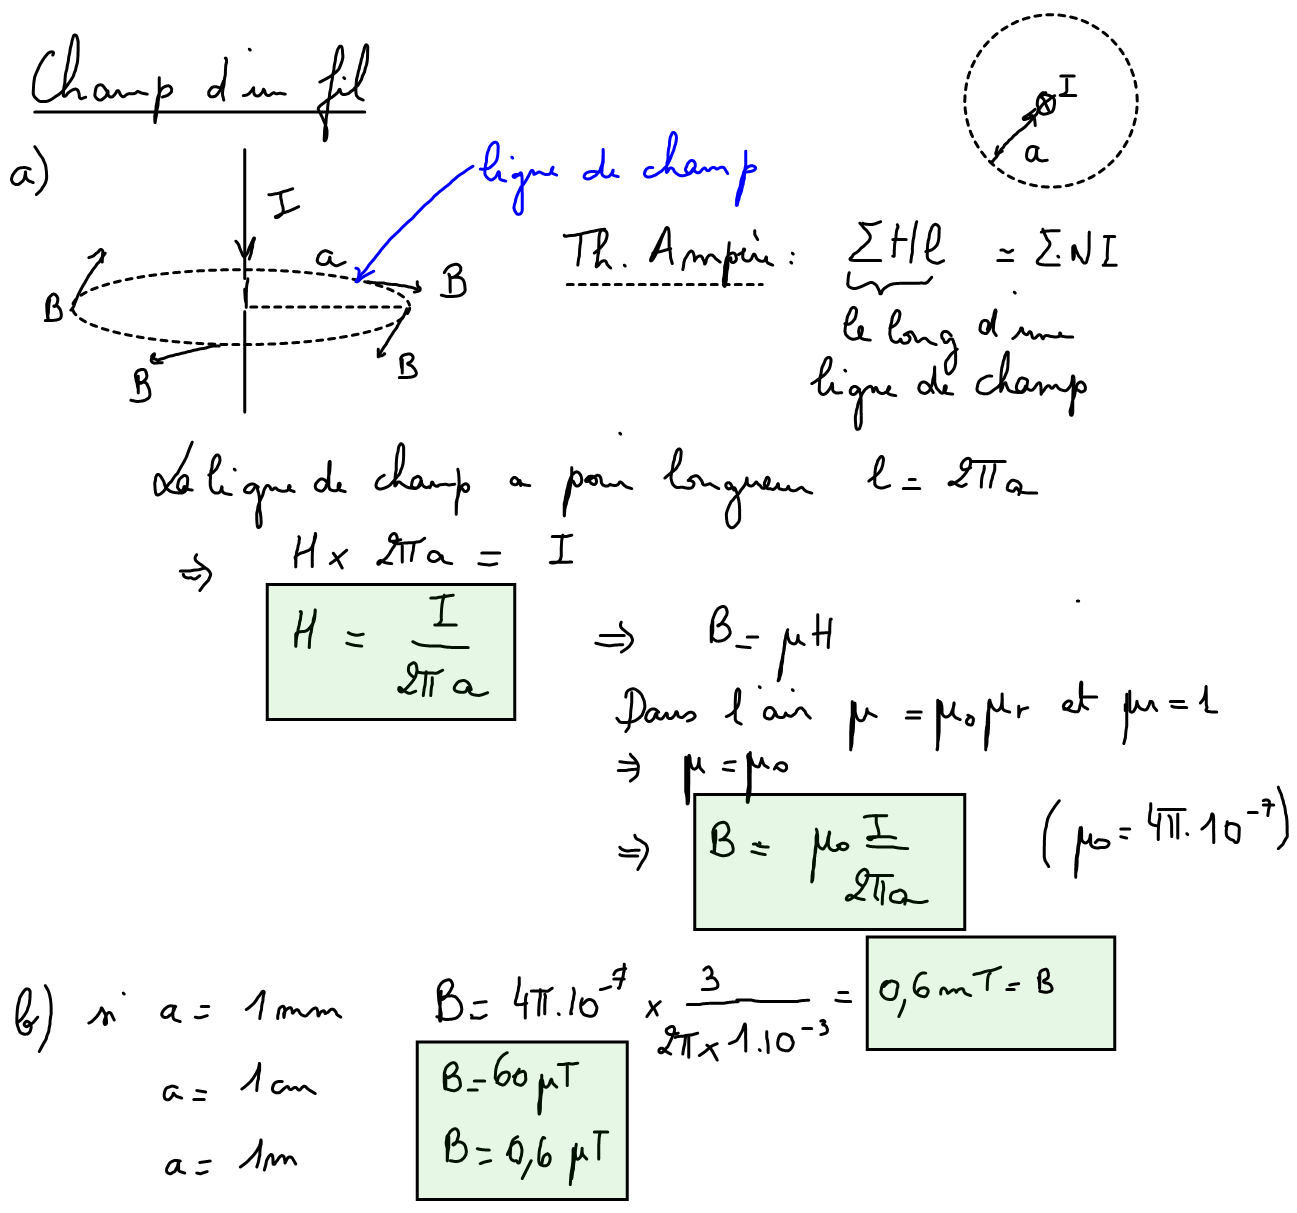 Champ d'un fil
I
a
a)
I
ligne de champ
a
B
B
B
B
Th. Ampère : ΣHl = ΣNI
le long d'une
ligne de champ
La ligne de champ a pour longueur l = 2πa
⇒ H × 2πa = I
H = I / 2πa ⇒ B = μH
Dans l'air μ = μ₀μr et μr = 1
⇒ μ = μ₀
⇒ B = μ₀ I / 2πa (μ₀ = 4π.10⁻⁷)
b) si a = 1 mm B = 4π.10⁻⁷ × 3 / 2π × 1.10⁻³ = 0,6 mT = B
a = 1 cm B = 60 μT
a = 1 m B = 0,6 μT